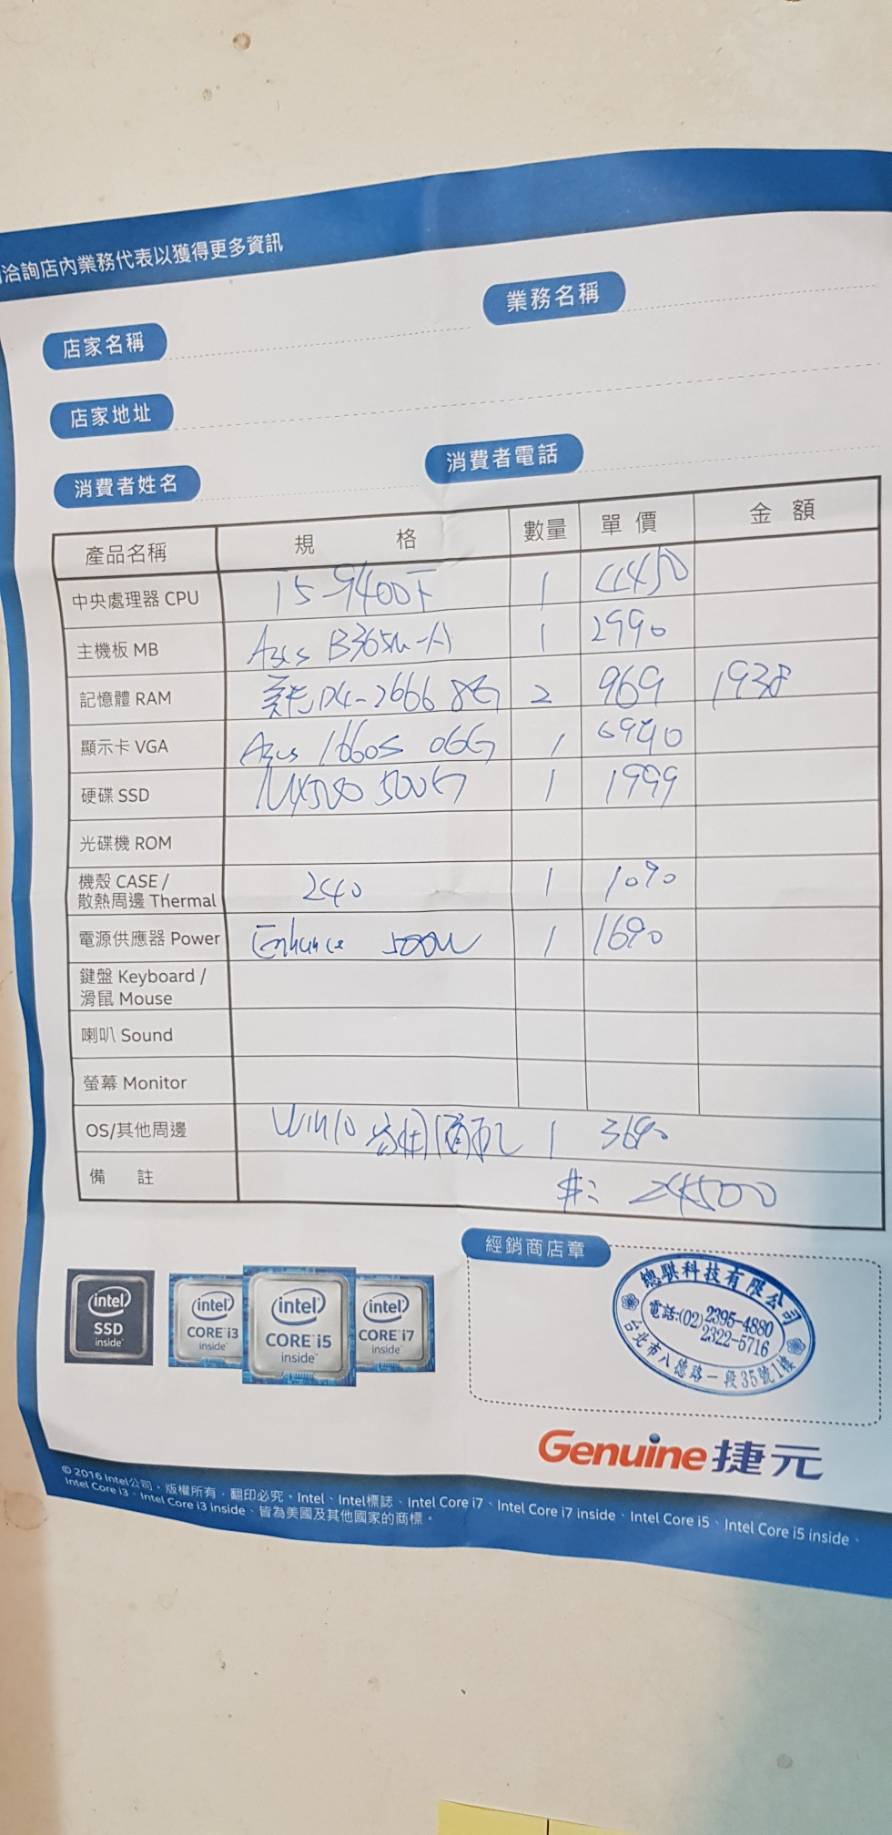 洽詢店內業務代表以獲得更多資訊
店家名稱 業務名稱
店家地址
消費者姓名 消費者電話
產品名稱 規 格 數量 單價 金額
中央處理器 CPU i5-9400F 1 4450
主機板 MB Asus B365M-A 1 2990
記憶體 RAM 美光 D4-2666 8G 2 969 1938
顯示卡 VGA Asus 1660S O6G 1 6990
硬碟 SSD MX500 500G 1 1999
光碟機 ROM
機殼 CASE /
散熱周邊 Thermal 240 1 1090
電源供應器 Power Enhance 500W 1 1690
鍵盤 Keyboard /
滑鼠 Mouse
喇叭 Sound
螢幕 Monitor
OS/其他周邊 Win10 1 3690
備 註 #: 24500
經銷商店章
總騏科技有限公司
電話:(02)2395-4880
2322-5716
台北市八德路一段35號1樓
intel SSD inside
intel CORE i3 inside
intel CORE i5 inside
intel CORE i7 inside
Genuine 捷元
© 2016 Intel公司,版權所有,翻印必究。Intel、Intel標誌、Intel Core i7、Intel Core i7 inside、Intel Core i5、Intel Core i5 inside、
Intel Core i3、Intel Core i3 inside、皆為美國及其他國家的商標。